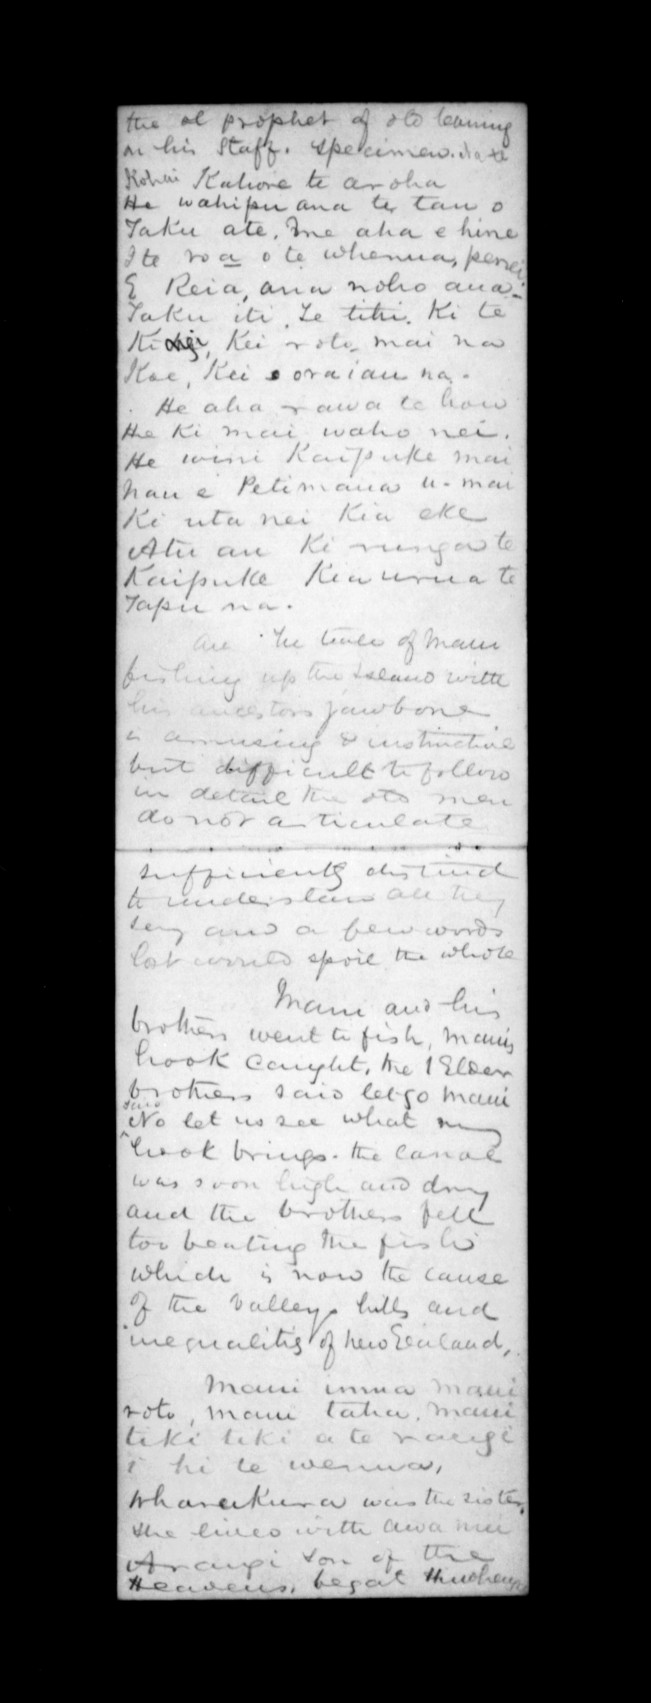 the ol prophet of old leaning
on his Staff. Specimen.
Kahore te aroha
He wahipu ana te tau o
Taku ate. Me aha e hine
I te roa o te whenua,
E Reia, ana noho ana
Taku iti. Te titi. Ki te
Ki Kei roto mai na
Koe, Kei oraiau na.
He aha rawa te hau
He Ki mai waho nei.
He wini Kaipuke mai
hau e Petimana u-mai
Ki uta nei Kia eke
Atu au Ki runga te
Kaipuke Kia urua te
Tapu na.
The tale of Maui
fishing up the Island with
his ancestors jawbone
is amusing & instructive
but difficult to follow
in detail the old men
do not articulate
sufficiently distinct
to understand all they
say and a few words
lost would spoil the whole
Maui and his
brothers went to fish, Mauis
hook caught, the Elder
brothers said let go Maui
said
No let us see what my
hook brings. the canoe
was soon high and dry
and the brothers fell
too beating the fish
which is now the cause
of the valleys hills and
inequalitis of New Zealand,
Maui mua Maui
roto, Maui taha, Maui
tiki tiki a te rangi
i hi te wenua,
Wharekura was the sister,
she lived with
Arangi son of the
Heavens, begat